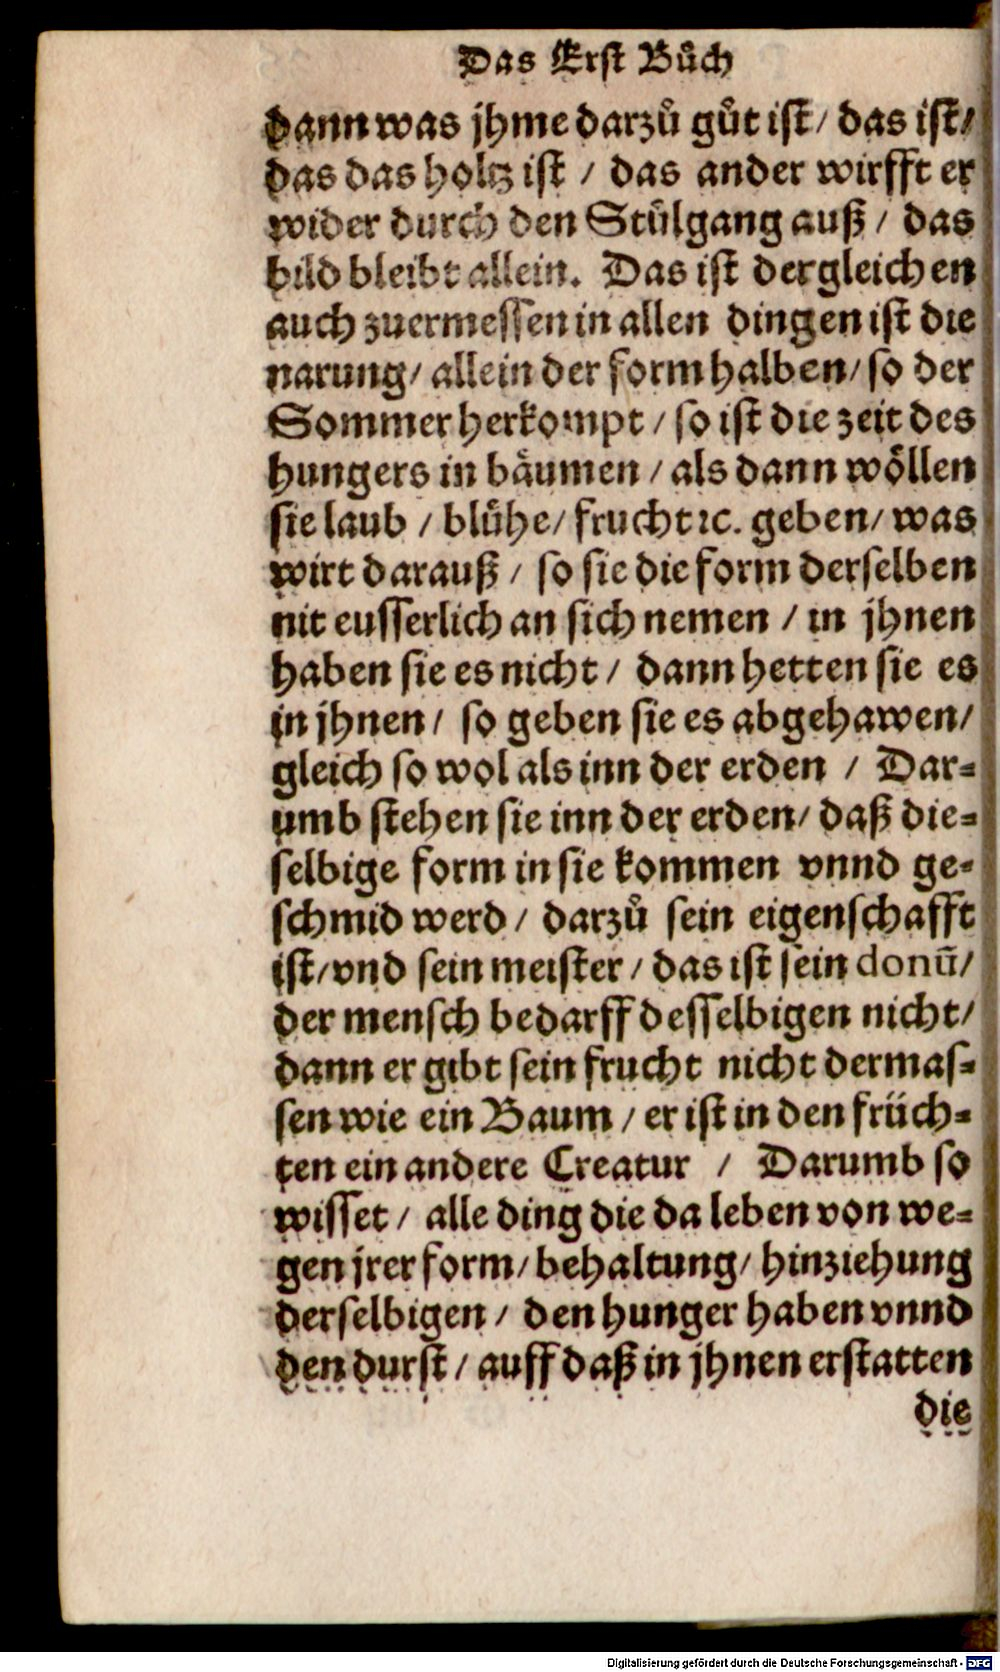 Das Erst Bůch
dann was jhme darzů gůt ist / das ist /
das das holtz ist / das ander wirfft er
wider durch den Stůlgang auß / das
bild bleibt allein. Das ist dergleichen
auch zuermessen in allen dingen ist die
narung / allein der form halben / so der
Sommer herkompt / so ist die zeit des
hungers in bäumen / als dann wöllen
sie laub / blühe / frucht ꝛc. geben / was
wirt darauß / so sie die form derselben
nit eusserlich an sich nemen / in jhnen
haben sie es nicht / dann hetten sie es
in jhnen / so geben sie es abgehawen /
gleich so wol als inn der erden / Dar-
umb stehen sie inn der erden / daß die-
selbige form in sie kommen vnnd ge-
schmid werd / darzů sein eigenschafft
ist / vnd sein meister / das ist sein donū /
der mensch bedarff desselbigen nicht /
dann er gibt sein frucht nicht dermas-
sen wie ein Baum / er ist in den früch-
ten ein andere Creatur / Darumb so
wisset / alle ding die da leben von we-
gen jrer form / behaltung / hinziehung
derselbigen / den hunger haben vnnd
den durst / auff daß in jhnen erstatten
die
Digitalisierung gefördert durch die Deutsche Forschungsgemeinschaft - DFG